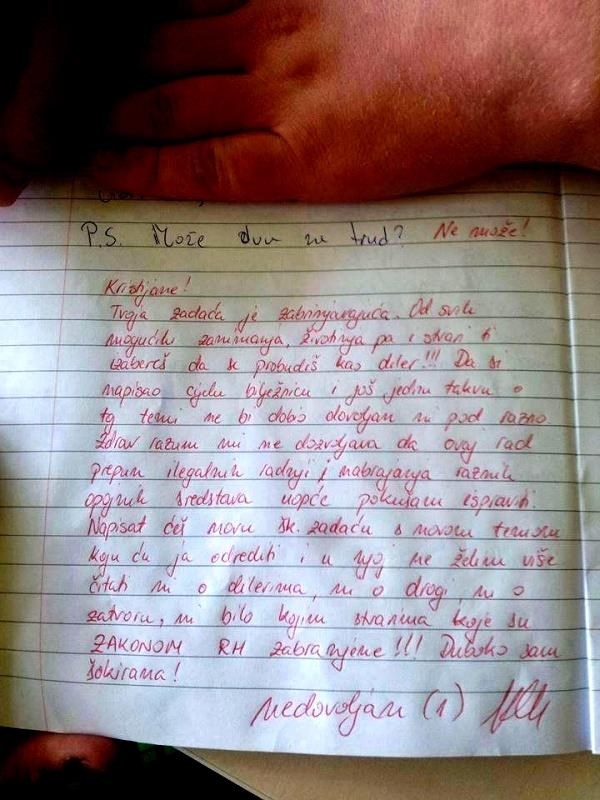 P.S. Može dva za trud? Ne može!
Kristijane!
Tvoja zadaća je zabrinjavajuća. Od svih
mogućih zanimanja, životinja pa i stvari ti
izabereš da se probudiš kao diler!!! Da si
napisao cijelu bilježnicu i još jednu takvu o
toj temi ne bi dobio dovoljan ni pod razno.
Zdrav razum mi ne dozvoljava da ovaj rad
prepun ilegalnih radnji i nabrajanja raznih
opojnih sredstava uopće pokušam ispraviti.
Napisat ćeš novu šk. zadaću s novom temom
koju ću ja odrediti i u njoj ne želim više
čitati ni o dilerima, ni o drogi, ni o
zatvoru, ni bilo kojim stvarima koje su
ZAKONOM RH zabranjene!!! Duboko sam
šokirana!
nedovoljan (1)